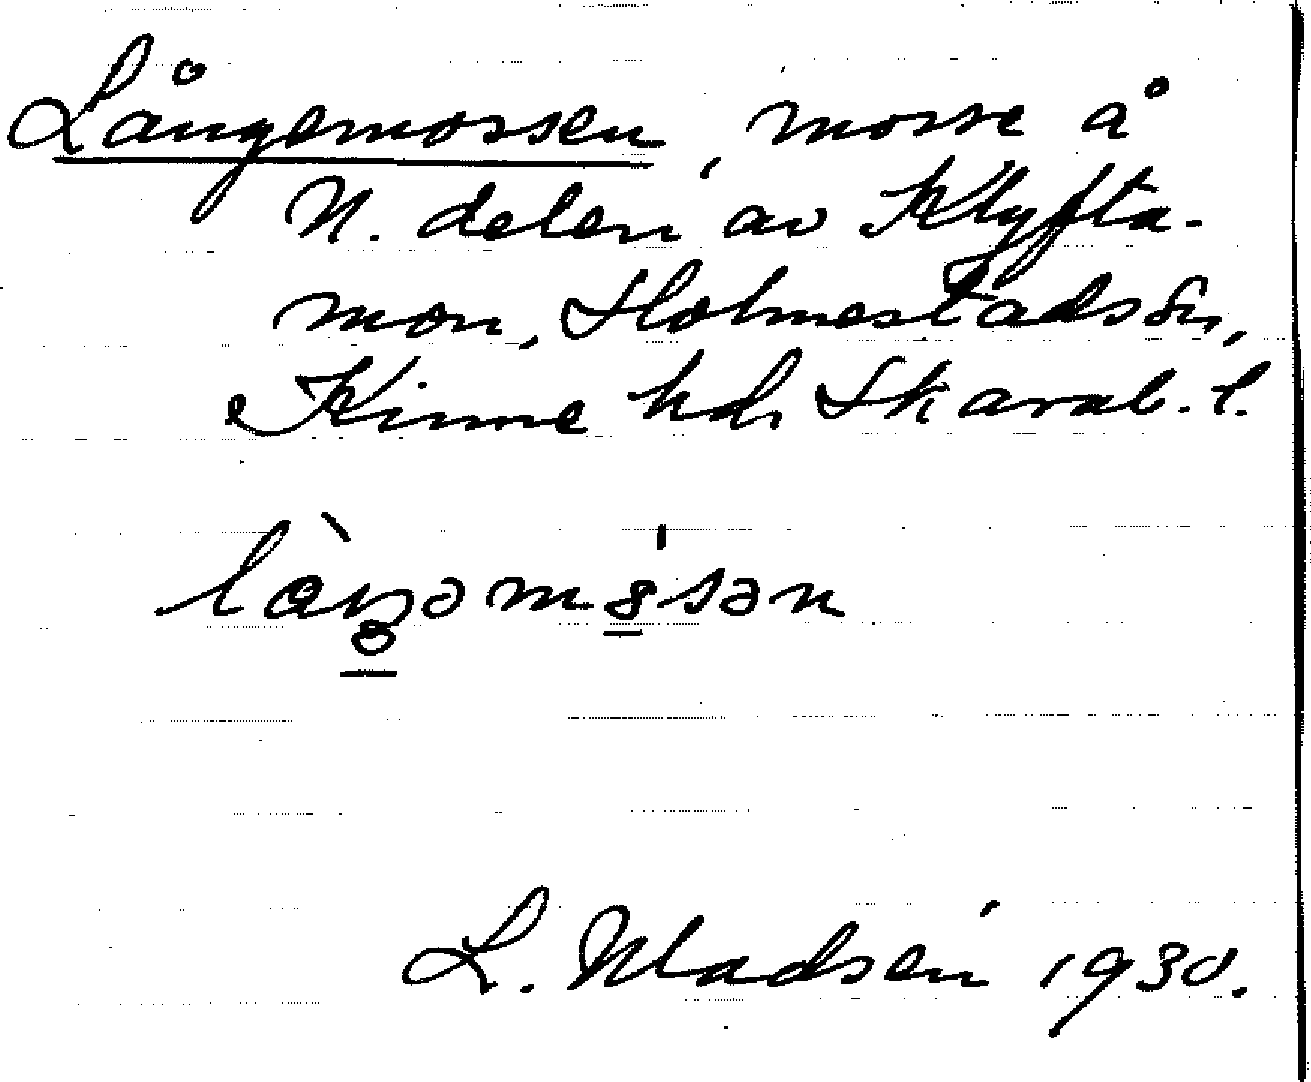 Långemossen, mosse å
N. delen av Klyfta-
mon, Holmestads sn,
Kinne hd, Skarab. l.
L. Madsén 1930.